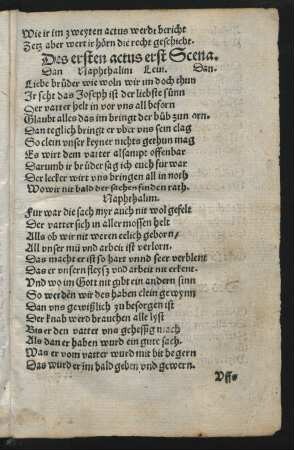 Wie ir im zweyten actus werdt bericht
Jetz aber wert ir hörn die recht geschicht.
Des ersten actus erst Scena.
Dan Naphthalim Leui. Dan.
Liebe brüder wie woln wir im doch thun
Ir seht das Joseph ist der liebste sünn
Der vatter helt in vor uns all besorn
Glaubt alles das im bringt der bůb zun orn.
Dan teglich bringt er vber vns sein clag
So clein vnser keyner nichts gethun mag
Es wirt dem vatter alsampt offenbar
Darumb ir brüder sag ich euch fur war
Der lecker wirt vns bringen all in noth
Wo wir nit bald der sachen finden rath.
Naphthalim.
Fur war die sach myr auch nit wol gefelt
Der vatter sich in aller mossen helt
Alls ob wir nit weren eelich geborn/
All vnser mü vnd arbeit ist verlorn.
Das macht er ist so hart vnnd seer verblent
Das er vnsern fleysz vnd arbeit nit erkent.
Vnd wo im Gott nit gibt ein andern sinn
So werden wir des haben clein gewynn
Dan vns gewißlich zu besorgen ist
Der knab werd brauchen alle lyst
Bis er den vatter vns gehessig mach
Als dan er haben wurd ein gute sach.
Was er vom vatter wurd mit bit begern
Das wurd er im bald geben vnd gewern.
Vff